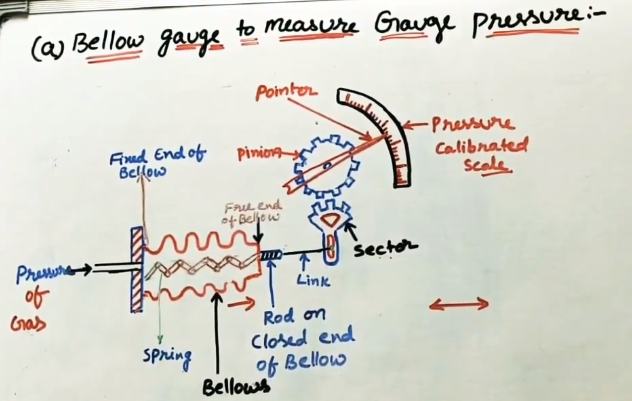 (a) Bellow gauge to measure Gauge Pressure:-
Pointer
Pressure
Calibrated
Scale
Pinion
Fixed End of
Bellow
Free end
of Bellow
Sector
Pressure
of
Gas
Link
Rod on
Closed end
of Bellow
Spring
Bellows